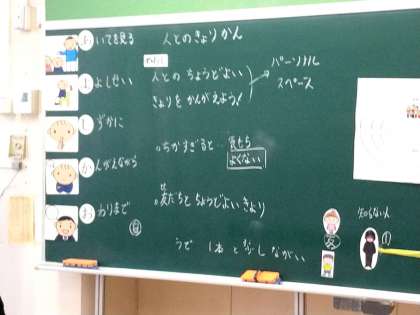 あいてを見る
よいしせい
しずかに
かんがえながら
おわりまで
人とのきょりかん
人との ちょうどよい
きょりを かんがえよう!
パーソナル
スペース
ちかすぎると… 気もち
よくない
友だちと ちょうどよい きょり
うで 1本と 少し ながい
友
知らない人
①